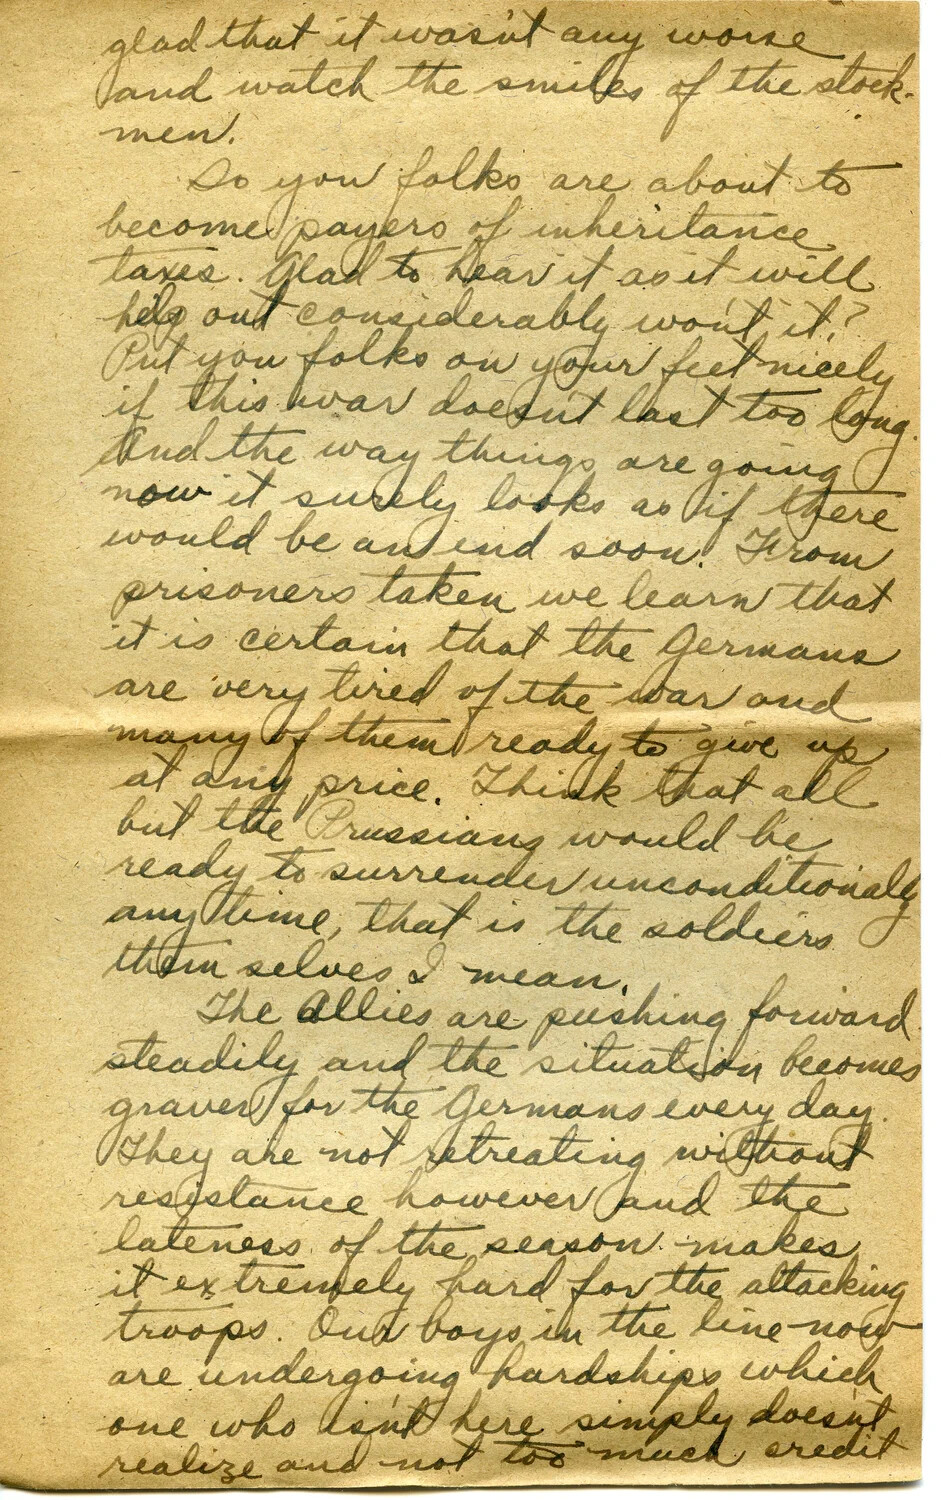 glad that it wasn't any worse
and watch the smiles of the stock-
men.
So you folks are about to
become payers of inheritance
taxes. Glad to hear it as it will
help out considerably won't it?
Put you folks on your feet nicely
if this war doesn't last too long.
And the way things are going
now it surely looks as if there
would be an end soon. From
prisoners taken we learn that
it is certain that the Germans
are very tired of the war and
many of them ready to give up
at any price. Think that all
but the Prussians would be
ready to surrender unconditionaly
any time, that is the soldiers
them selves I mean.
The Allies are pushing forward
steadily and the situation becomes
graver for the Germans every day.
They are not retreating without
resistance however and the
lateness of the season makes
it extremely hard for the attacking
troops. Our boys in the line now
are undergoing hardships which
one who isn't here simply doesn't
realize and not too much credit